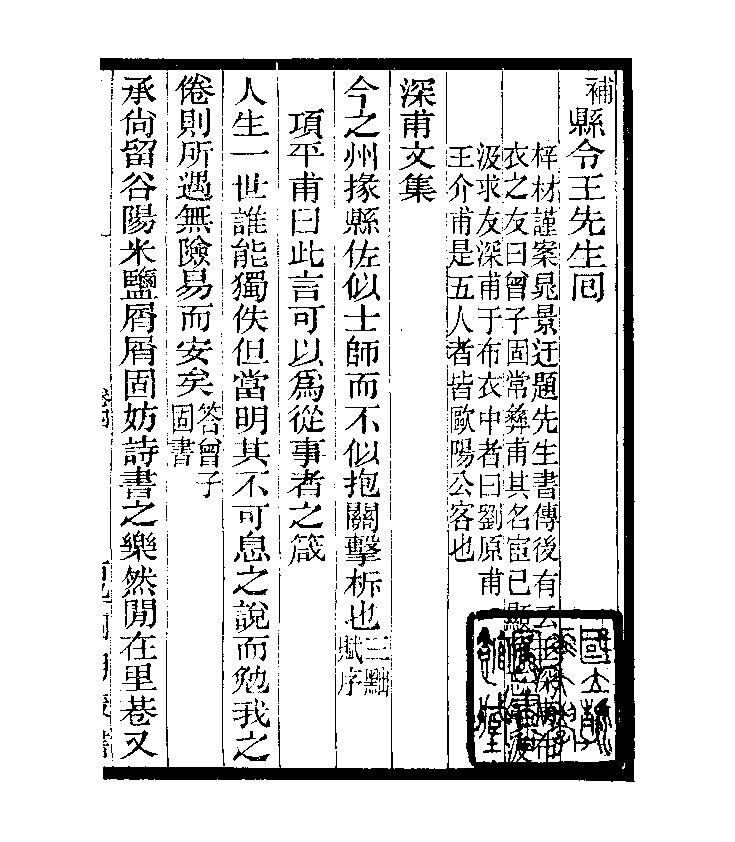 補縣令王先生囘
梓材謹案晁景迂題先生書傳後有云深甫布
衣之友曰曾子固常彝甫其名宦已顯汲
汲求友深甫于布衣中者曰劉原甫
王介甫是五人者皆歐陽公客也
深甫文集
今之州掾縣佐似士師而不似抱關擊柝也三黜賦序
項平甫曰此言可以爲從事者之箴
人生一世誰能獨佚但當明其不可息之說而勉我之
倦則所遇無險易而安矣答曾子固書
承尙留谷陽米鹽屑屑固妨詩書之樂然閒在里巷又